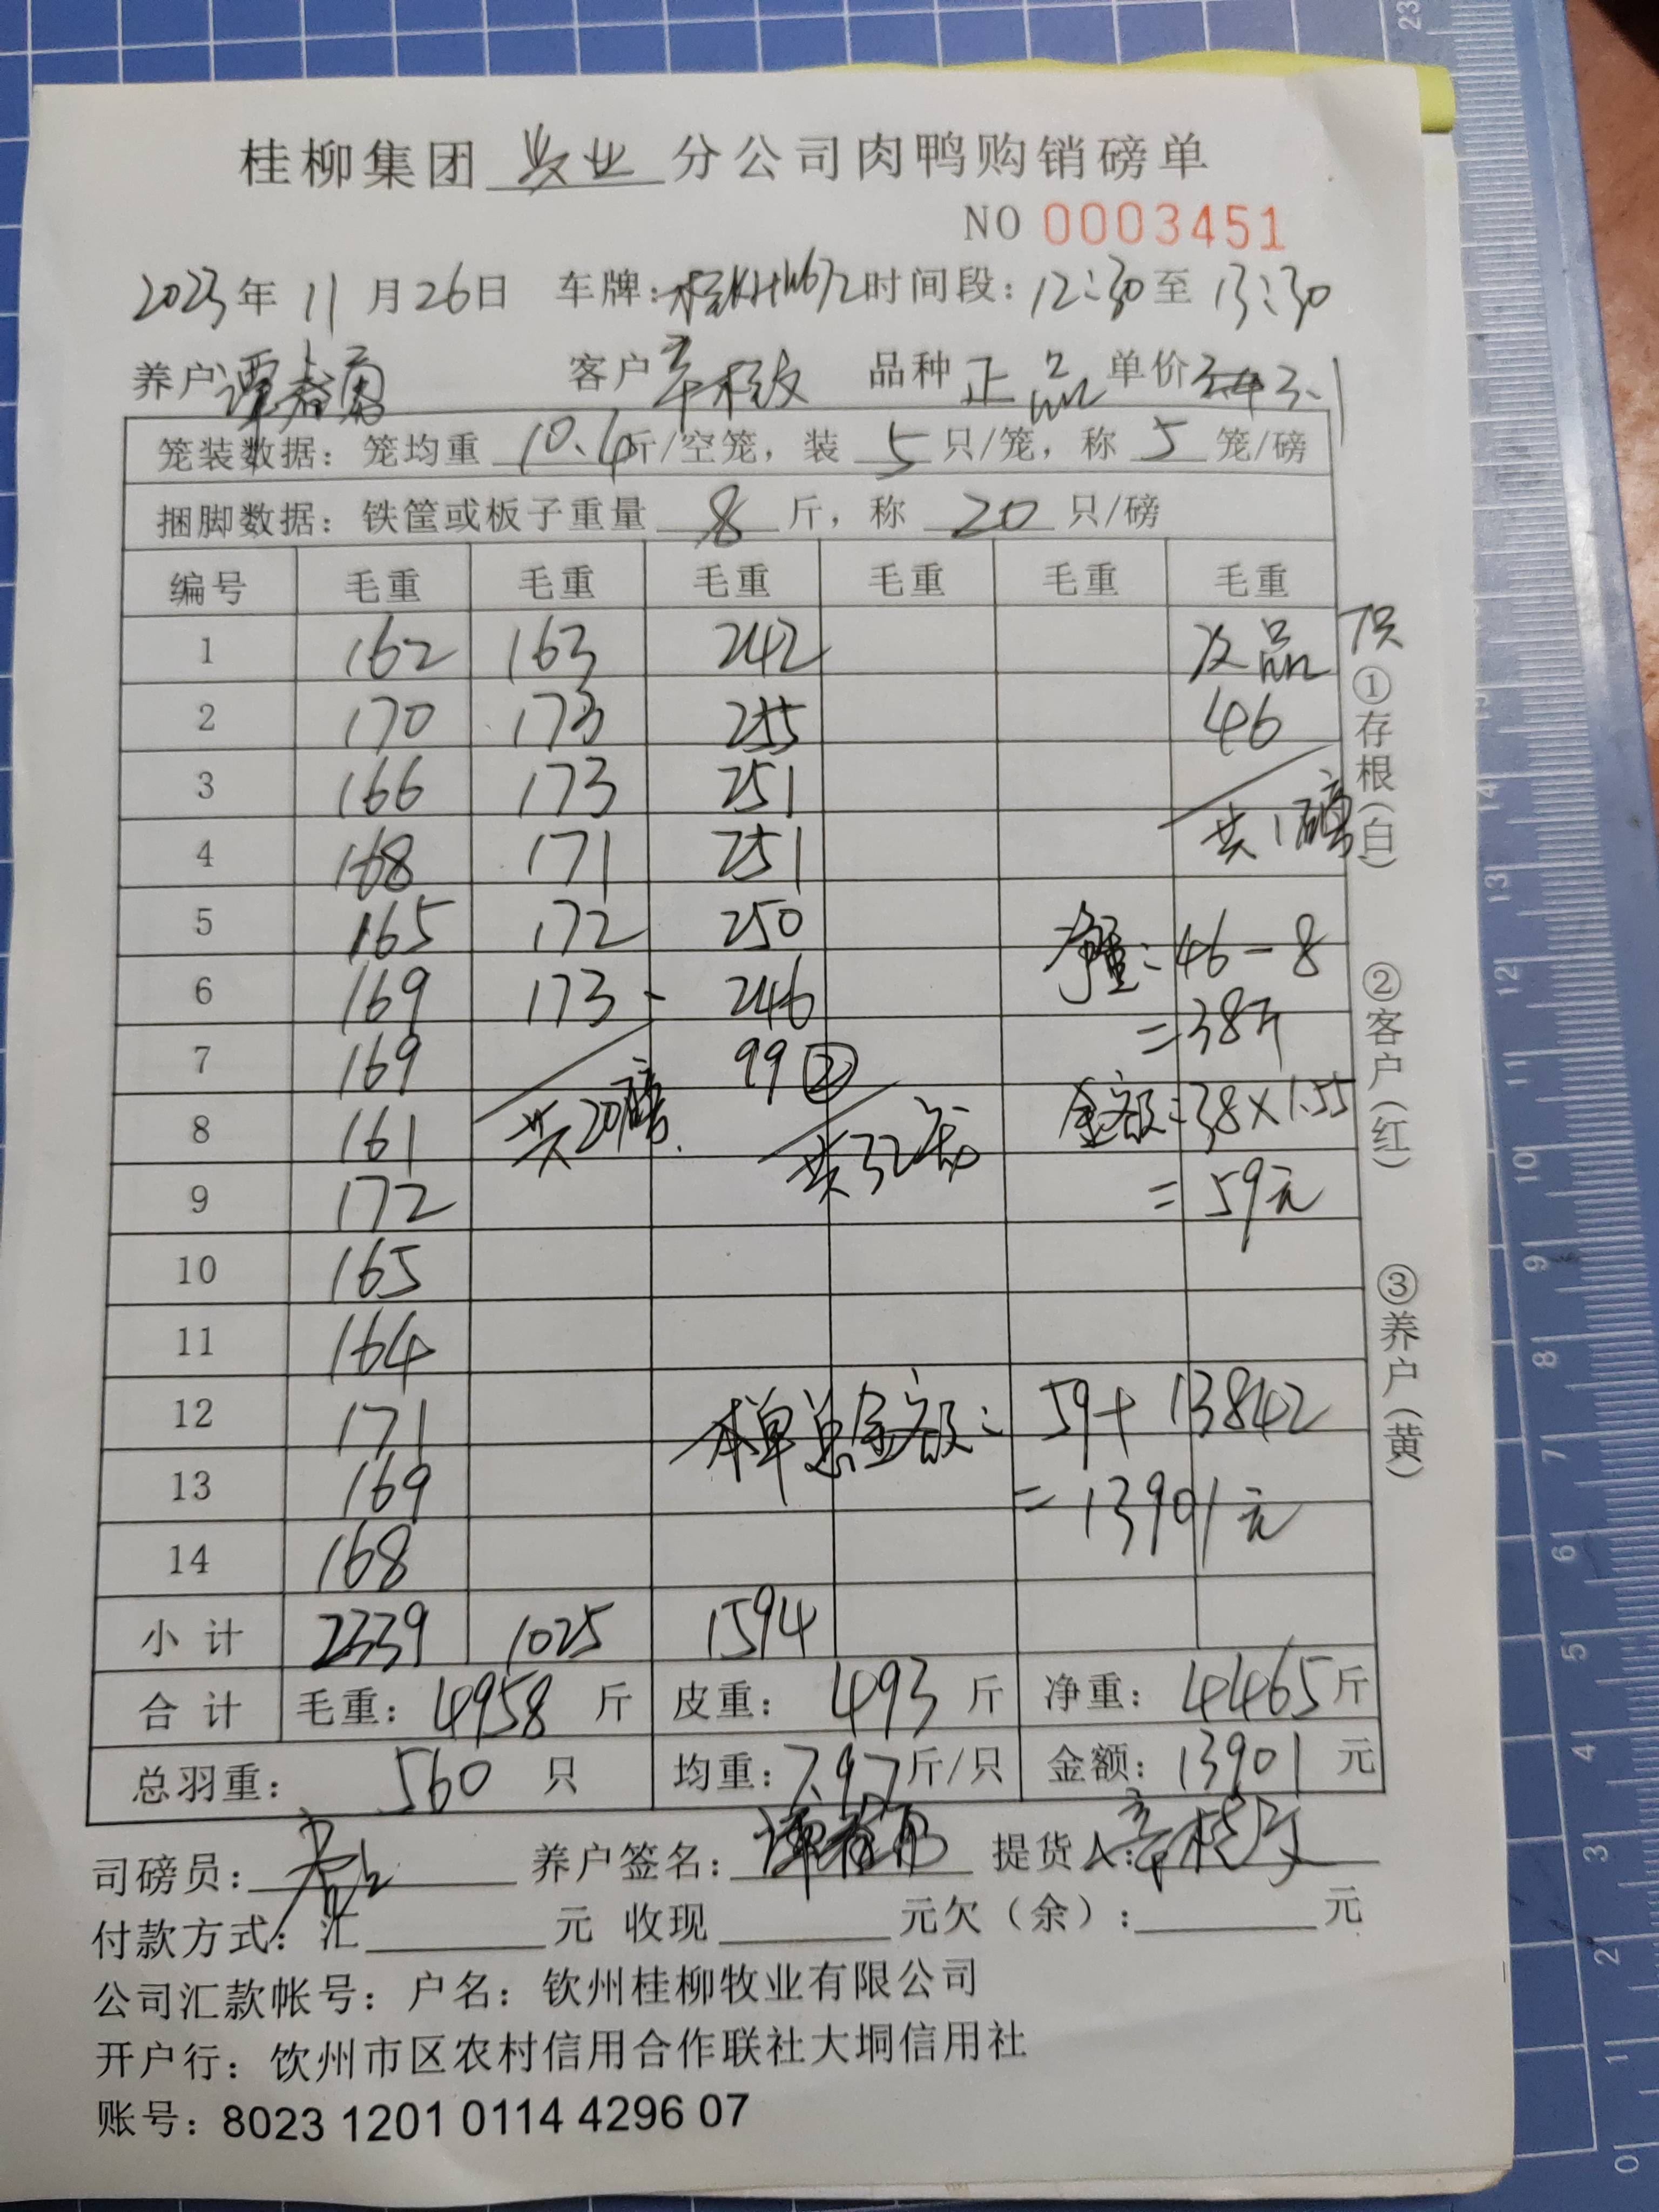 桂柳集团 牧业 分公司肉鸭购销磅单
NO 0003451
2023年 11 月 26日 车牌: 时间段: 12:30 至 13:30
养户 谭春 客户 品种 正品 单价 3.1
笼装数据: 笼均重 10.4 斤/空笼, 装 5 只/笼, 称 5 笼/磅
捆脚数据: 铁筐或板子重量 8 斤, 称 20 只/磅
编号 毛重 毛重 毛重 毛重 毛重 毛重
1 162 163 242 次品 7只
2 170 173 255 46
3 166 173 251
4 168 171 251 共1磅
5 165 172 250 净重: 46-8
6 169 173 246 =38斤
7 169 99 ②
8 161 共20磅. 共32筐 金额: 38×1.55
9 172 =59元
10 165
11 164
12 171 本单总金额: 59+13842
13 169 =13901元
14 168
小计 2339 1025 1594
合计 毛重: 4958 斤 皮重: 493 斤 净重: 4465 斤
总羽重: 560 只 均重: 7.97 斤/只 金额: 13901 元
司磅员: 养户签名: 谭春 提货人:
付款方式: 汇 元 收现 元欠(余): 元
公司汇款帐号: 户名: 钦州桂柳牧业有限公司
开户行: 饮州市区农村信用合作联社大垌信用社
账号: 8023 1201 0114 4296 07
①存根(白) ②客户(红) ③养户(黄)